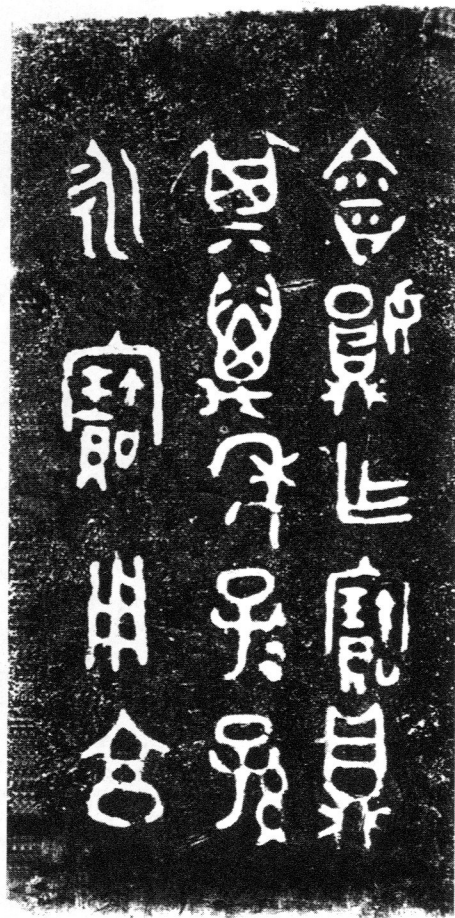 會娟乍寶鼎
其萬年子〓孫
永寶用享